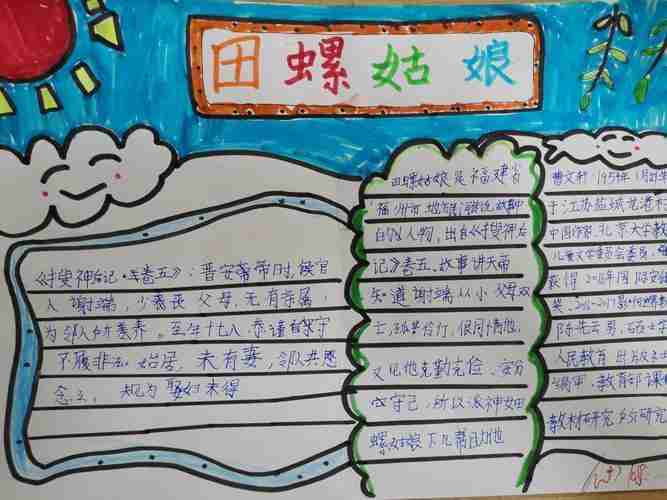 田螺姑娘
《搜神后记·卷五》:晋安帝时,候官
人谢端,少丧父母,无有亲属,
为邻人所养。至年十七八,恭谨自守
不履非法。始居,未有妻,邻人共愍
念之,规为娶妇未得
田螺姑娘是福建省
福州市地方传说故事中
的人物,出自《搜神后
记》卷五。故事讲天帝
知道谢端从小父母双
亡,孤苦伶仃,很同情他,
又见他克勤克俭、安分
守己,所以派神女田
螺姑娘下凡帮助他
曹文轩,1954年1月
于江苏盐城
中国作家,北京大学教
儿童文学委员会委员,
获得2016年国际安
人民教育出版
编审,教育部课
教材研究所研究